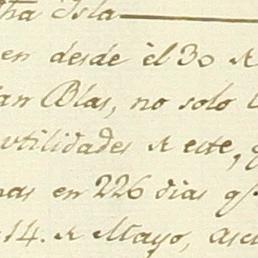 tha Isla
en desde el 30 de
an Blas, no solo
utilidades de este,
as en 226 dias q.e
14. de Mayo, asc